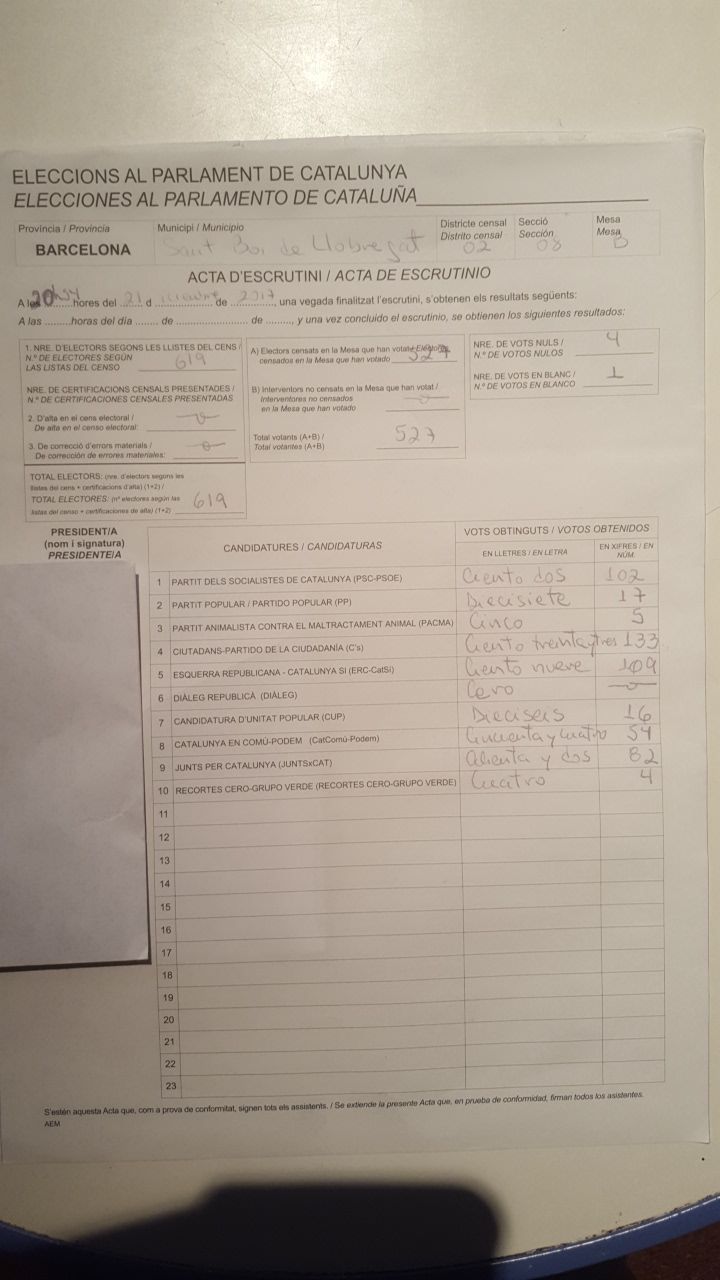 ELECCIONS AL PARLAMENT DE CATALUNYA
ELECCIONES AL PARLAMENTO DE CATALUÑA
Província / Provincia Municipi / Municipio Districte censal Secció Mesa
Distrito censal Sección Mesa
BARCELONA Sant Boi de Llobregat 02 08 B
ACTA D'ESCRUTINI / ACTA DE ESCRUTINIO
A les 20h54 hores del 21 d de 2017, una vegada finalitzat l'escrutini, s'obtenen els resultats següents:
A las ......... horas del día ....... de .................. de ........, y una vez concluido el escrutinio, se obtienen los siguientes resultados:
1. NRE. D'ELECTORS SEGONS LES LLISTES DEL CENS /
N.º DE ELECTORES SEGÚN
LAS LISTAS DEL CENSO 619
NRE. DE CERTIFICACIONS CENSALS PRESENTADES /
N.º DE CERTIFICACIONES CENSALES PRESENTADAS
2. D'alta en el cens electoral /
De alta en el censo electoral: 0
3. De correcció d'errors materials /
De corrección de errores materiales: 0
TOTAL ELECTORS: (nre. d'electors segons les
llistes del cens + certificacions d'alta) (1+2) /
TOTAL ELECTORES: (nº electores según las
listas del censo + certificaciones de alta) (1+2) 619
A) Electors censats en la Mesa que han votat / Electores
censados en la Mesa que han votado 527
B) Interventors no censats en la Mesa que han votat /
Interventores no censados
en la Mesa que han votado 0
Total votants (A+B) /
Total votantes (A+B) 527
NRE. DE VOTS NULS /
N.º DE VOTOS NULOS 4
NRE. DE VOTS EN BLANC /
N.º DE VOTOS EN BLANCO 1
PRESIDENT/A
(nom i signatura)
PRESIDENTE/A
CANDIDATURES / CANDIDATURAS
VOTS OBTINGUTS / VOTOS OBTENIDOS
EN LLETRES / EN LETRA EN XIFRES / EN NÚM.
1 PARTIT DELS SOCIALISTES DE CATALUNYA (PSC-PSOE) Ciento dos 102
2 PARTIT POPULAR / PARTIDO POPULAR (PP) Diecisiete 17
3 PARTIT ANIMALISTA CONTRA EL MALTRACTAMENT ANIMAL (PACMA) Cinco 5
4 CIUTADANS-PARTIDO DE LA CIUDADANÍA (C's) Ciento treinta y tres 133
5 ESQUERRA REPUBLICANA - CATALUNYA SÍ (ERC-CatSí) Ciento nueve 109
6 DIÀLEG REPUBLICÀ (DIÀLEG) Cero 0
7 CANDIDATURA D'UNITAT POPULAR (CUP) Dieciseis 16
8 CATALUNYA EN COMÚ-PODEM (CatComú-Podem) Cincuenta y cuatro 54
9 JUNTS PER CATALUNYA (JUNTSxCAT) Ochenta y dos 82
10 RECORTES CERO-GRUPO VERDE (RECORTES CERO-GRUPO VERDE) Cuatro 4
11
12
13
14
15
16
17
18
19
20
21
22
23
S'estén aquesta Acta que, com a prova de conformitat, signen tots els assistents. / Se extiende la presente Acta que, en prueba de conformidad, firman todos los asistentes.
AEM